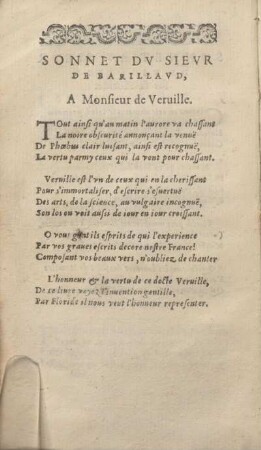 SONNET DV SIEVR
DE BARILLAVD,
A Monsieur de Veruille.
TOut ainsi qu'au matin l'aurore va chassant
La noire obscurité annonçant la venuë
De Phœbus clair luisant, ainsi est recognuë,
La vertu parmy ceux qui la vont pourchassant.
Verville est l'vn de ceux qui en la cherissant
Pour s'immortaliser, d'escrire s'esuertuë
Des arts, de la science, au vulgaire incognuë,
Son los on voit aussi de iour en iour croissant.
O vous gentils esprits de qui l'experience
Par vos graues escrits decore nostre France!
Composant vos beaux vers, n'oubliez de chanter
L'honneur & la vertu de ce docte Veruille,
De ce liure voyez l'inuention gentille,
Par Floride il nous veut l'honneur representer.